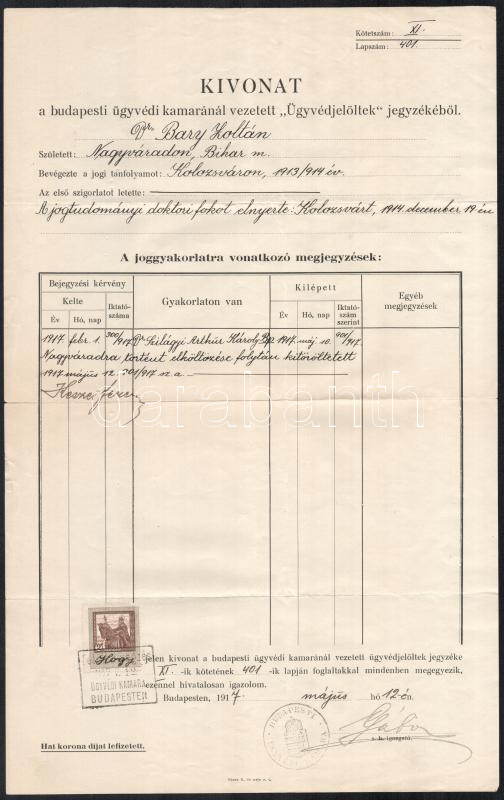 Kötetszám: XI.
Lapszám: 401.
KIVONAT
a budapesti ügyvédi kamaránál vezetett „Ügyvédjelöltek" jegyzékéből.
Dr. Bary Zoltán
Született: Nagyváradon, Bihar m.
Bevégezte a jogi tanfolyamot: Kolozsváron, 1913/914 év.
Az első szigorlatot letette:
A jogtudományi doktori fokot elnyerte: Kolozsvárt, 1914. december 19 én
A joggyakorlatra vonatkozó megjegyzések:
Bejegyzési kérvény
Kelte
Év
Hó, nap
Iktató-
száma
Gyakorlaton van
Kilépett
Év
Hó, nap
Iktató-
szám
szerint
Egyéb
megjegyzések
1917. febr. 1. 300/917. Dr. Szilágyi Arthur Károly Bp. 1917. máj. 10. 901/917.
Nagyváradra történt elköltözése folytán kitöröltetett
1917 május 12. 901/917 sz. a.
darabanth
Hogy jelen kivonat a budapesti ügyvédi kamaránál vezetett ügyvédjelöltek jegyzéke
XI.-ik kötetének 401-ik lapján foglaltakkal mindenben megegyezik,
ezennel hivatalosan igazolom.
Budapesten, 1917. május hó 12-én.
ÜGYVÉDI KAMARA
BUDAPESTEN
BUDAPESTI
Hat korona díjat lefizetett.
s. h. igazgató.